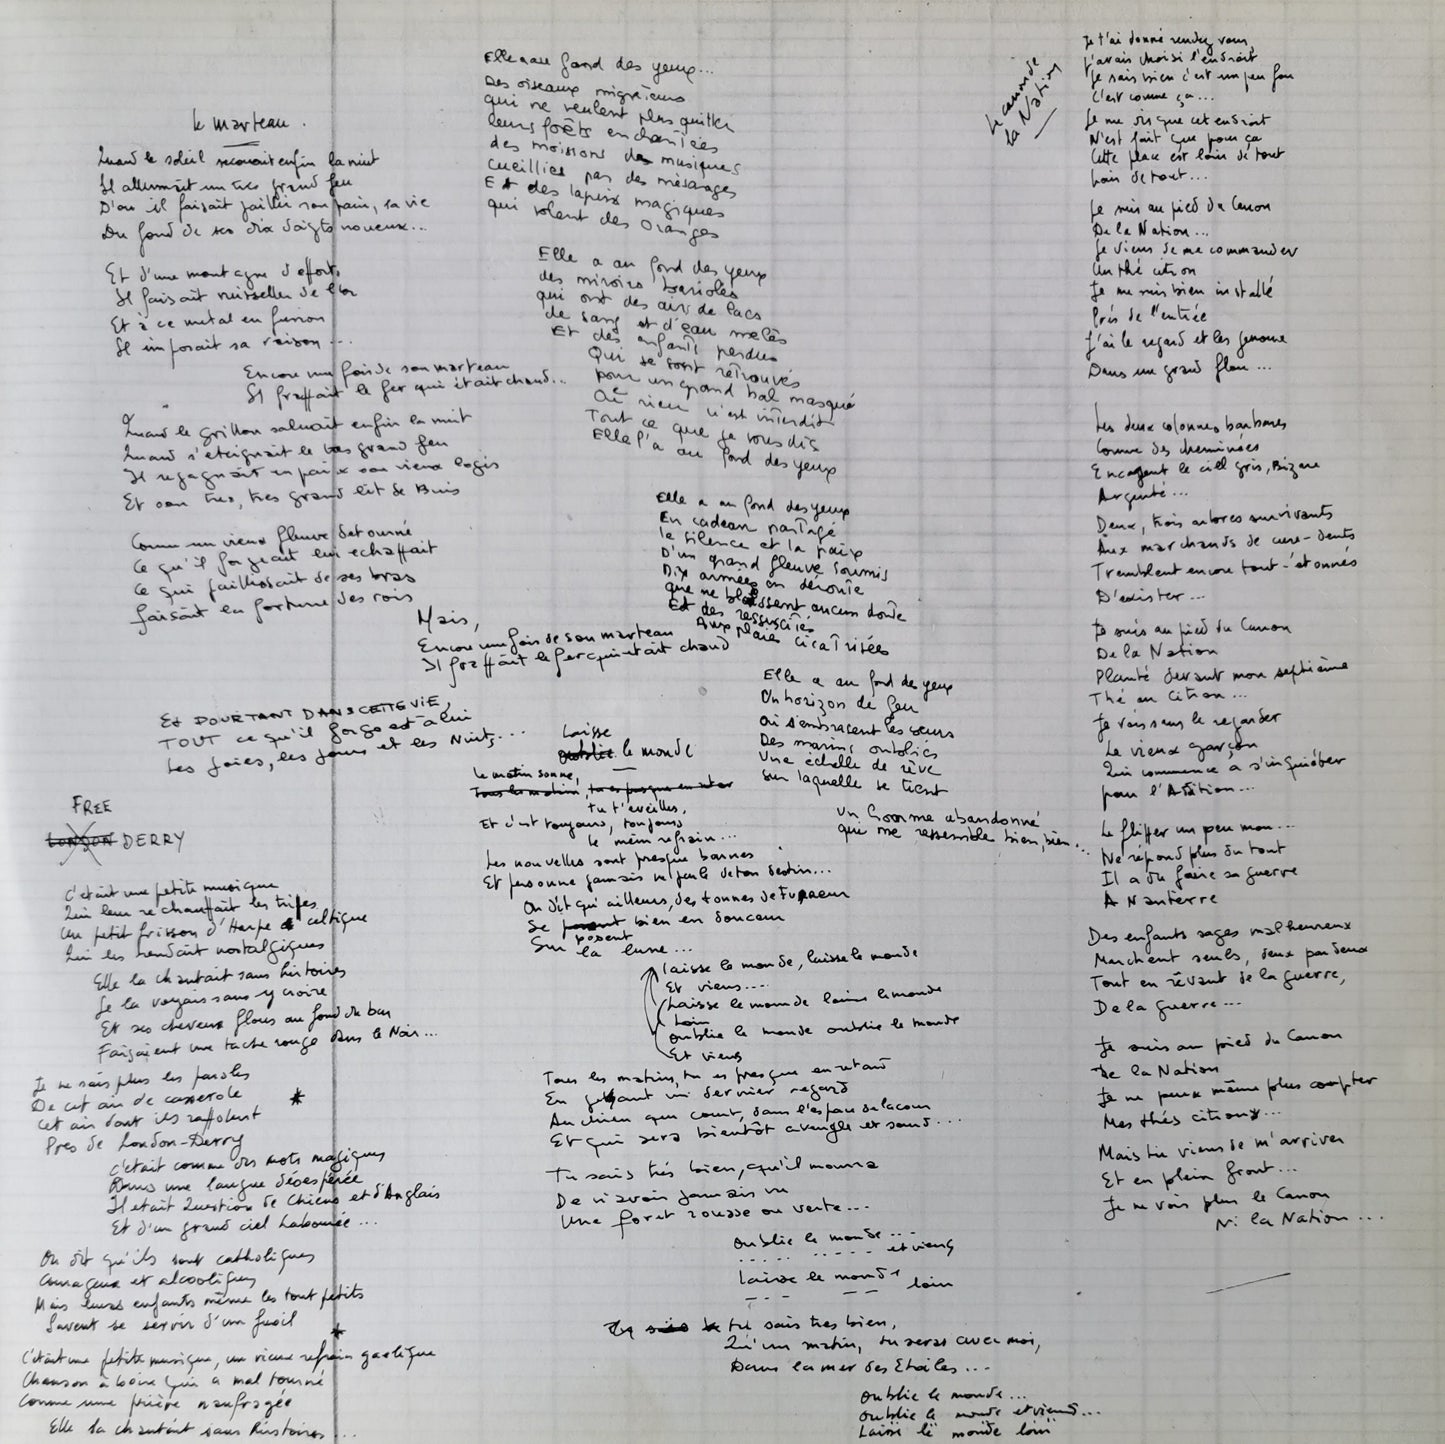 le marteau.
Quand le soleil secouait enfin la nuit
Il allumait un tres grand feu
D'ou il faisait jaillir son pain, sa vie
Du fond de ses dix doigts noueux...
Et d'une montagne d'efforts
Il faisait ruisseller de l'or
Et à ce metal en fusion
Il imposait sa raison...
Encore une fois de son marteau
Il frappait le fer qui était chaud...
Quand le grillon saluait enfin la nuit
Quand s'éteignait le tres grand feu
Il regagnait en paix son vieux logis
Et son tres, tres grand lit de Buis
Comme un vieux fleuve detourné
Ce qu'il forgeait lui echappait
Ce qui jaillissait de ses bras
faisait la fortune des rois
Mais,
Encore une fois de son marteau
Il frappait le fer qui etait chaud
Et POURTANT DANS CETTE VIE,
TOUT ce qu'il forge est à lui
Les joies, les jours et les Nuits...
FREE
LONDON DERRY
C'était une petite musique
Qui leur réchauffait les tripes
Un petit frisson d'Harpe celtique
Qui les rendait nostalgiques
Elle la chantait sans histoires
Je la voyais sans y croire
Et ses cheveux flous au fond du bar
Faisaient une tache rouge dans le Noir...
Je ne sais plus les paroles
De cet air de casserole
Cet air dont ils raffolent
Pres de London-Derry
C'était comme des mots magiques
Dans une langue désespérée
Il etait Question de Chiens et d'Anglais
Et d'un grand ciel Labourée...
On dit qu'ils sont catholiques
Courageux et alcooliques
Mais leurs enfants même les tout petits
Savent se servir d'un fusil
C'était une petite musique, un vieux refrain gaelique
Chanson à boire qui a mal tourné
Comme une prière naufragée
Elle la chantait sans histoires...
Elle a au fond des yeux...
Des oiseaux migrateurs
qui ne veulent plus quitter
leurs forêts enchantées
des moissons de musiques
cueillies par des mésanges
Et des lapins magiques
qui volent des oranges
Elle a au fond des yeux
des miroirs bariolés
qui ont des airs de lacs
de sang et d'eau mélés
Et des enfants perdus
Qui se sont retrouvés
pour un grand bal masqué
Où rien n'est interdit
Tout ce que je vous dis
Elle l'a au fond des yeux
Elle a au fond des yeux
En cadeau partagé
le silence et la paix
D'un grand fleuve soumis
Dix armées en déroute
que ne blessent aucun doute
Et des ressuscités
Aux plaies cicatrisées
Elle a au fond des yeux
Un horizon de feu
Où s'embrassent les sœurs
Des marins oubliés
Une échelle de rêve
sur laquelle se tient
Un homme abandonné
qui me ressemble bien, bien...
Laisse
oublie le monde
le matin sonne,
Tous les matins, tu es presque en retard
tu t'éveilles,
Et c'est toujours, toujours
le même refrain...
Les nouvelles sont presque bonnes
Et personne jamais ne parle de ton destin...
On dit qu'ailleurs, des tonnes de Fureur
Se posent bien en douceur
posent
Sur la lune...
Laisse le monde, laisse le monde
Et viens....
Laisse le monde laisse le monde
Loin
oublie le monde oublie le monde
Et viens
Tous les matins, tu es presque en retard
En jetant un dernier regard
Au chien qui court, dans l'espace de la cour
Et qui sera bientôt aveugle et sourd...
Tu sais très bien, qu'il mourra
De n'avoir jamais vu
Une foret rousse ou verte...
oublie le monde...
..... et viens
Laisse le monde loin
tu sais tres bien,
Qu'un matin, tu seras avec moi,
Dans la mer des Etoiles...
oublie le monde...
oublie le monde et viens...
Laisse le monde loin
le canon de
la Nation
Je t'ai donné rendez vous,
J'avais choisi l'endroit
Je sais bien c'est un peu fou
C'est comme ça...
Je me dis que cet endroit
N'est fait que pour ça
Cette place est loin de tout
Loin de tout...
Je suis au pied du Canon
De la Nation...
Je viens de me commander
Un thé citron
Je me suis bien installé
Près de l'entrée
J'ai le regard et les genoux
Dans un grand flou...
Les deux colonnes barbares
Comme des cheminées
Encagent le ciel gris, Bizare
Argenté...
Deux, trois arbres survivants
Aux marchands de cure-dents
Tremblent encore tout-étonnés
D'exister...
Je suis au pied du Canon
De la Nation
Planté devant mon septième
Thé au Citron...
Je vois sans le regarder
Le vieux garçon
Qui commence à s'inquiéter
pour l'Addition...
Le flipper un peu mou...
Ne répond plus du tout
Il a du faire sa guerre
A Nanterre
Des enfants sages malheureux
Marchent seuls, deux par deux
Tout en rêvant de la guerre,
De la Guerre...
Je suis au pied du Canon
De la Nation
Je ne peux même plus compter
Mes thés citrons...
Mais tu viens de m'arriver
Et en plein front...
Je ne vois plus le Canon
Ni la Nation...